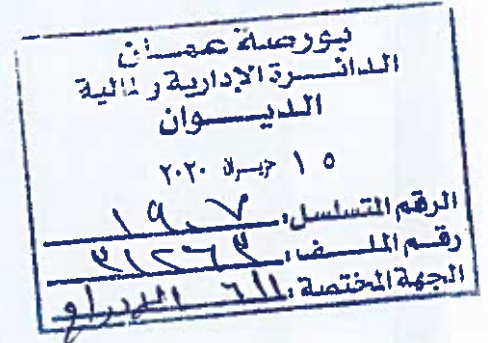 بورصة عمان
الدائرة الإدارية و المالية
الديوان
١٥ حزيران ٢٠٢٠
الرقم المتسلسل: ١٩٠٧
رقم الملف: ٣١٢٦٣
الجهة المختصة: